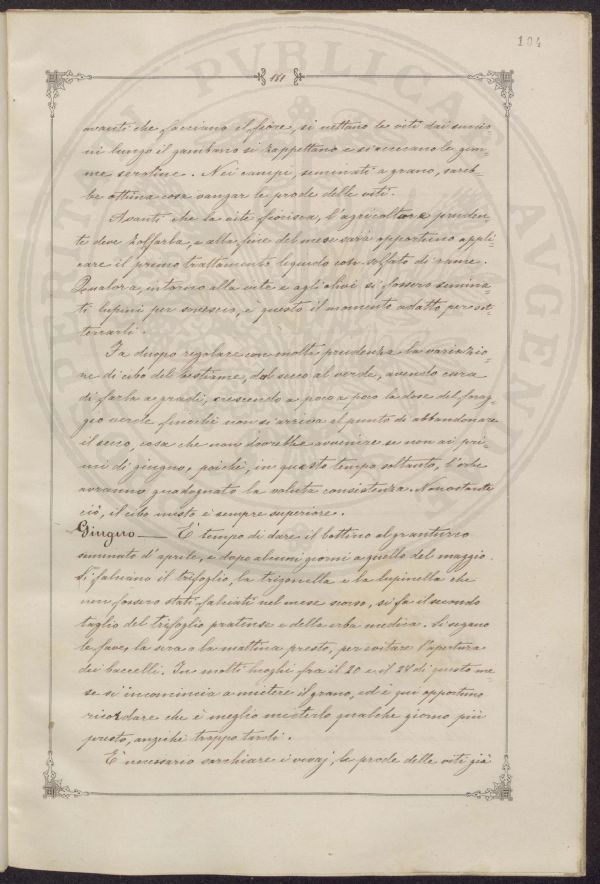 104
181
avanti che facciano il fiore, si nettano le viti dai succio-
ni lungo il gambano si zappettano e si accecano le gem-
me serotine. Nei campi, seminati a grano, sareb-
be ottima cosa vangar le prode delle viti.
Avanti che la vite fiorisca, l'agricoltore pruden-
te deve zolfarla, e alla fine del mese sarà opportuno appli-
care il primo trattamento liquido con solfato di rame.
Qualora, intorno alla vite e agli olivi si fossero semina-
ti lupini per sovescio, è questo il momento adatto per sot-
terrarli.
Fa duopo regolare con molta prudenza la variazio-
ne di cibo del bestiame, dal secco al verde, avendo cura
di farla a gradi, crescendo a poco a poco la dose del forag-
gio verde finchè non si arriva al punto di abbandonare
il secco, cosa che non dovrebbe avvenire se non ai pri-
mi di giugno, poichè, in questo tempo soltanto, l'erbe
avranno guadagnato la voluta consistenza. Nonostante
ciò, il cibo misto è sempre superiore.
Giugno — È tempo di dare il bottino al granturco
seminato d'aprile, e dopo alcuni giorni a quello del maggio.
Si falciano il trifoglio, la trigonella e la lupinella che
non fossero stati falciati nel mese scorso, si fa il secondo
taglio del trifoglio pratense e della erba medica. Si segano
le fave, la sera o la mattina presto, per evitare l'apertura
dei baccelli. In molti luoghi fra il 20 e il 28 di questo me-
se si incomincia a mietere il grano, ed è qui opportuno
ricordare che è meglio mieterlo qualche giorno più
presto, anzichè troppo tardi.
È necessario sarchiare i vivaj, le prode delle viti già